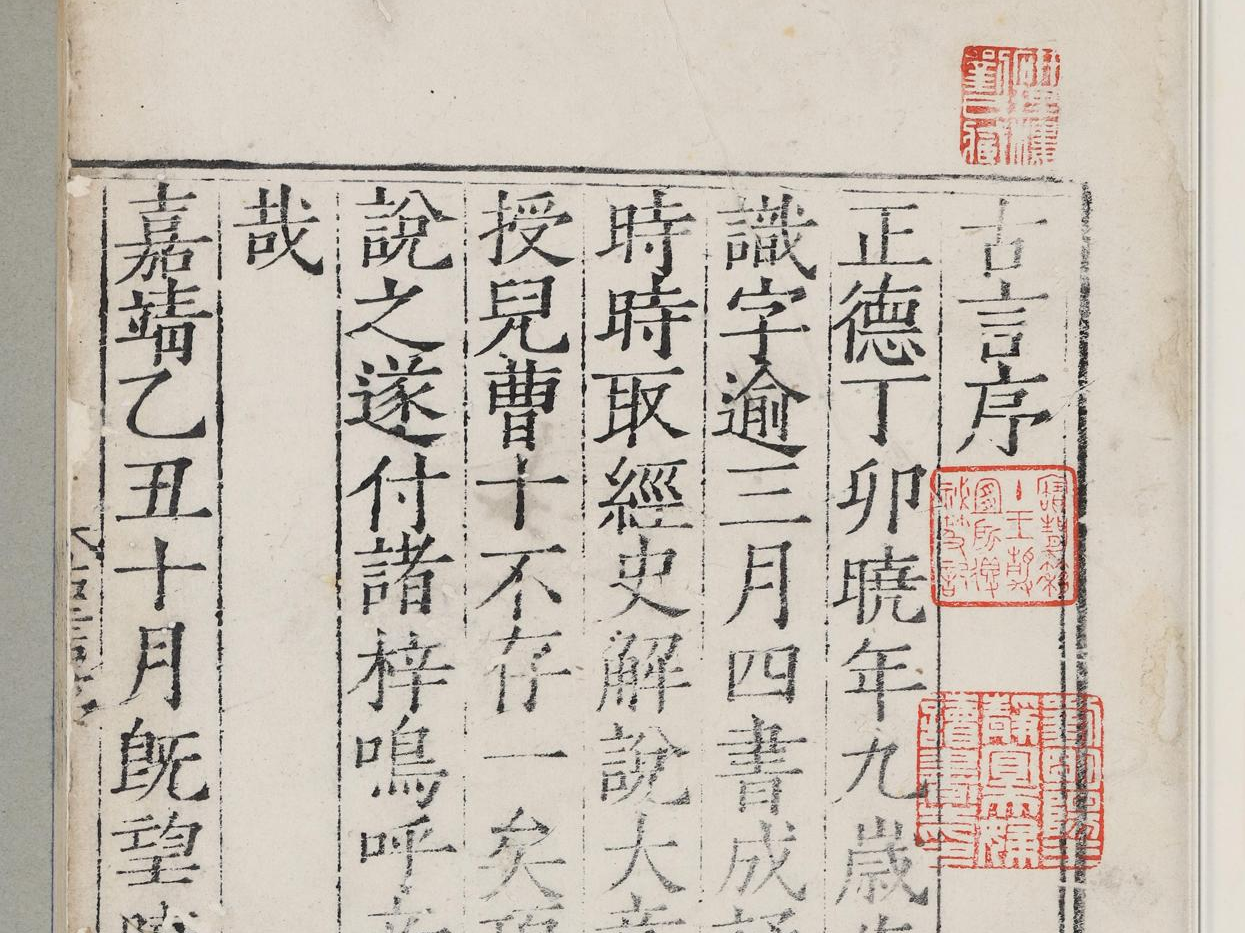 古言序
正德丁卯曉年九歲
識字逾三月四書成
時時取經史解說大
授兒曹十不存一矣
說之遂付諸梓嗚呼
哉
嘉靖乙丑十月既望